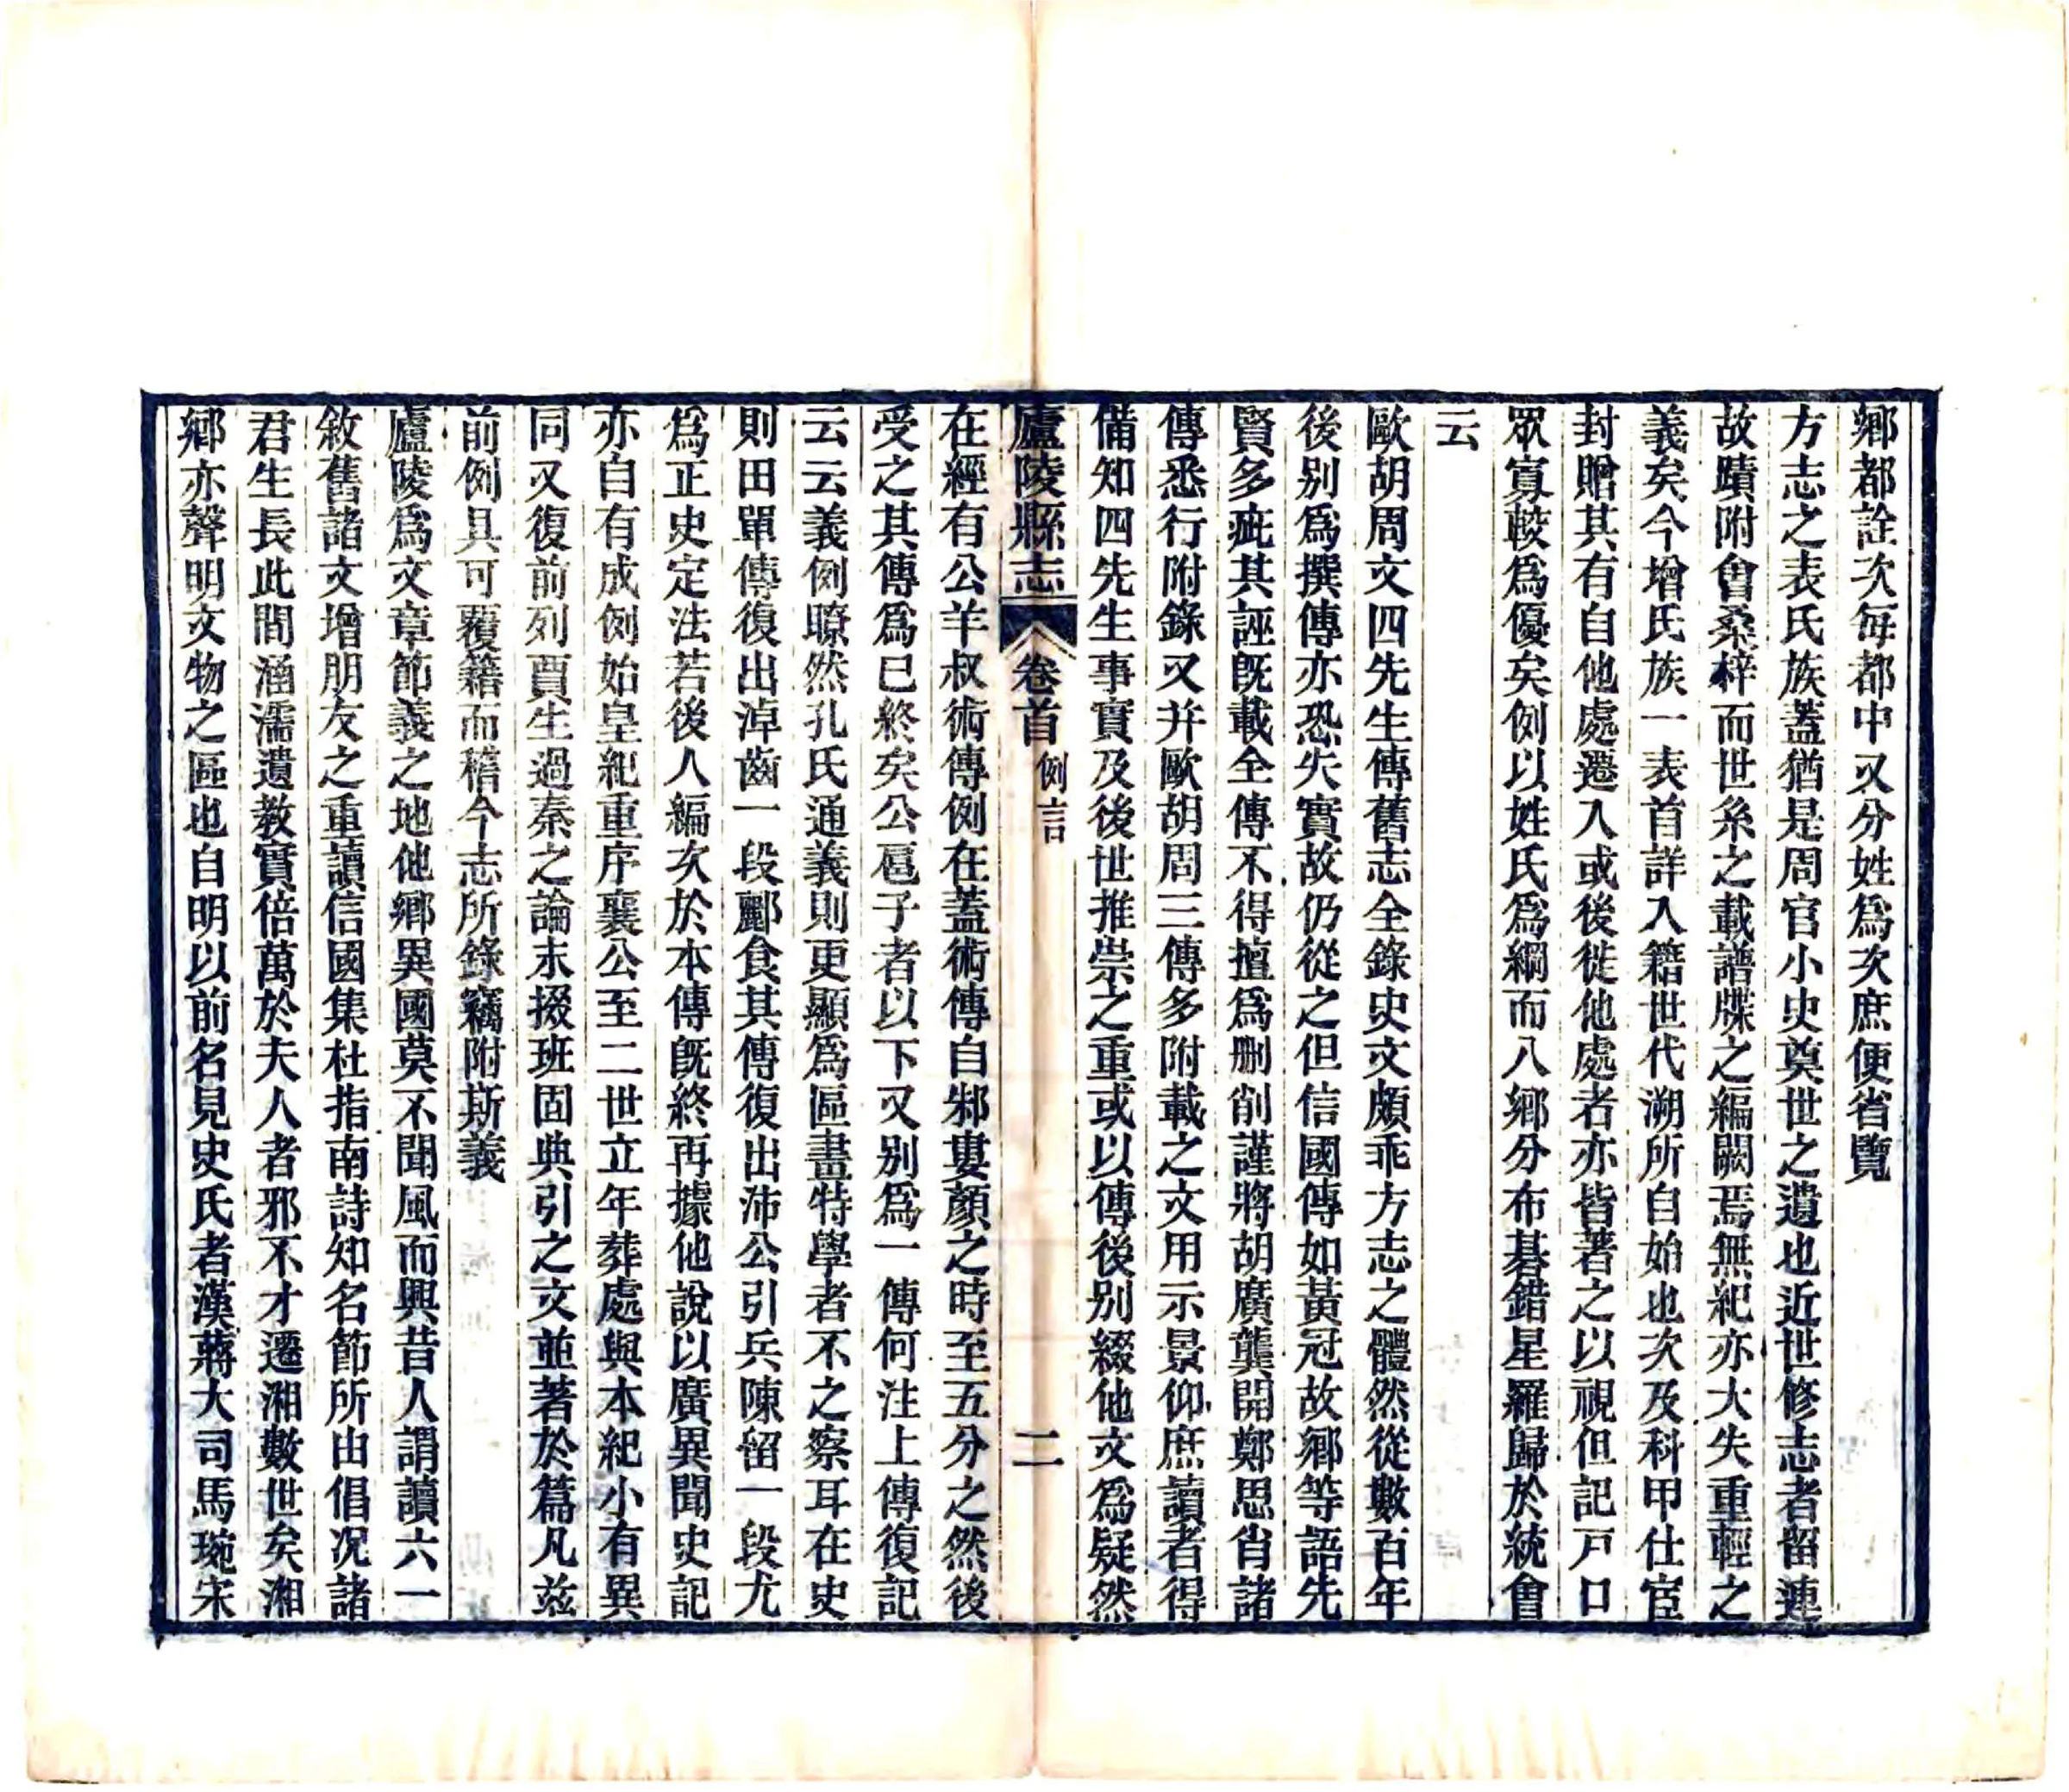 鄉都詮次每都中又分姓爲次庶便省覽
方志之表氏族蓋猶是周官小史奠世之遺也近世修志者留連
故蹟附會桑梓而世糸之載譜牒之編闕焉無紀亦大失重輕之
義矣今增氏族一表首詳入籍世代溯所自始也次及科甲仕宦
封贈其有自他處遷入或後徙他處者亦皆著之以視但記戸口
眾寡較爲優矣例以姓氏爲綱而八鄉分布碁錯星羅歸於統會
云
歐胡周文四先生傳舊志全錄史文頗乖方志之體然從數百年
後别爲撰傳亦恐失實故仍從之但信國傳如黃冠故鄉等語先
賢多疵其誣旣載全傳不得擅爲删削謹將胡廣龔開鄭思肖諸
傳悉行附錄又并歐胡周三傳多附載之文用示景仰庶讀者得
備知四先生事實及後世推崇之重或以傳後别綴他文爲疑然
廬陵縣志 卷首 例言 二
在經有公羊叔術傳例在蓋術傳自邾婁顏之時至五分之然後
受之其傳爲已終矣公扈子者以下又别爲一傳何注上傳復記
云云義例瞭然孔氏通義則更顯爲區畫特學者不之察耳在史
則田單傳復出淖齒一段酈食其傳復出沛公引兵陳留一段尤
爲正史定法若後人編次於本傳旣終再據他說以廣異聞史記
亦自有成例始皇紀重序襄公至二世立年葬處與本紀小有異
同又復前列賈生過秦之論末掇班固典引之文並著於篇凡茲
前例具可覆籍而稽今志所錄竊附斯義
廬陵爲文章節義之地他鄉異國莫不聞風而興昔人謂讀六一
敘舊諸文增朋友之重讀信國集杜指南詩知名節所由倡況諸
君生長此間涵濡遺教實倍萬於夫人者邪不才遷湘數世矣湘
鄉亦聲明文物之區也自明以前名見史氏者漢蔣大司馬琬宋